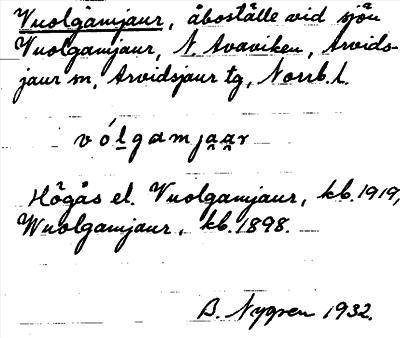 Vuolgamjaur, åboställe vid sjön
Vuolgamjaur, N. Avaviken, Arvids-
jaur sn, Arvidsjaur tg, Norrb. l.
vólgamjaar
Högås el. Vuolgamjaur, kb. 1919,
Wuolgamjaur, kb. 1898.
B. Nygren 1932.